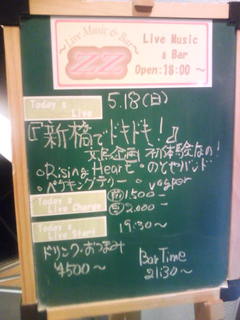 ~Live Music & Bar~
ZZ
Live Music
& Bar
Open:18:00 ~
Today's
Live
5.18(日)
『新橋でドキドキ!』
企画 初体験なの!
○Rising Heart ○のとやバンド
○ベッキングテリー ○vesper
Today's
Live Charge
前 1.500-
当 2.000-
Today's
Live Start
19:30~
ドリンク・おつまみ
¥500~
Bar Time
21:30~